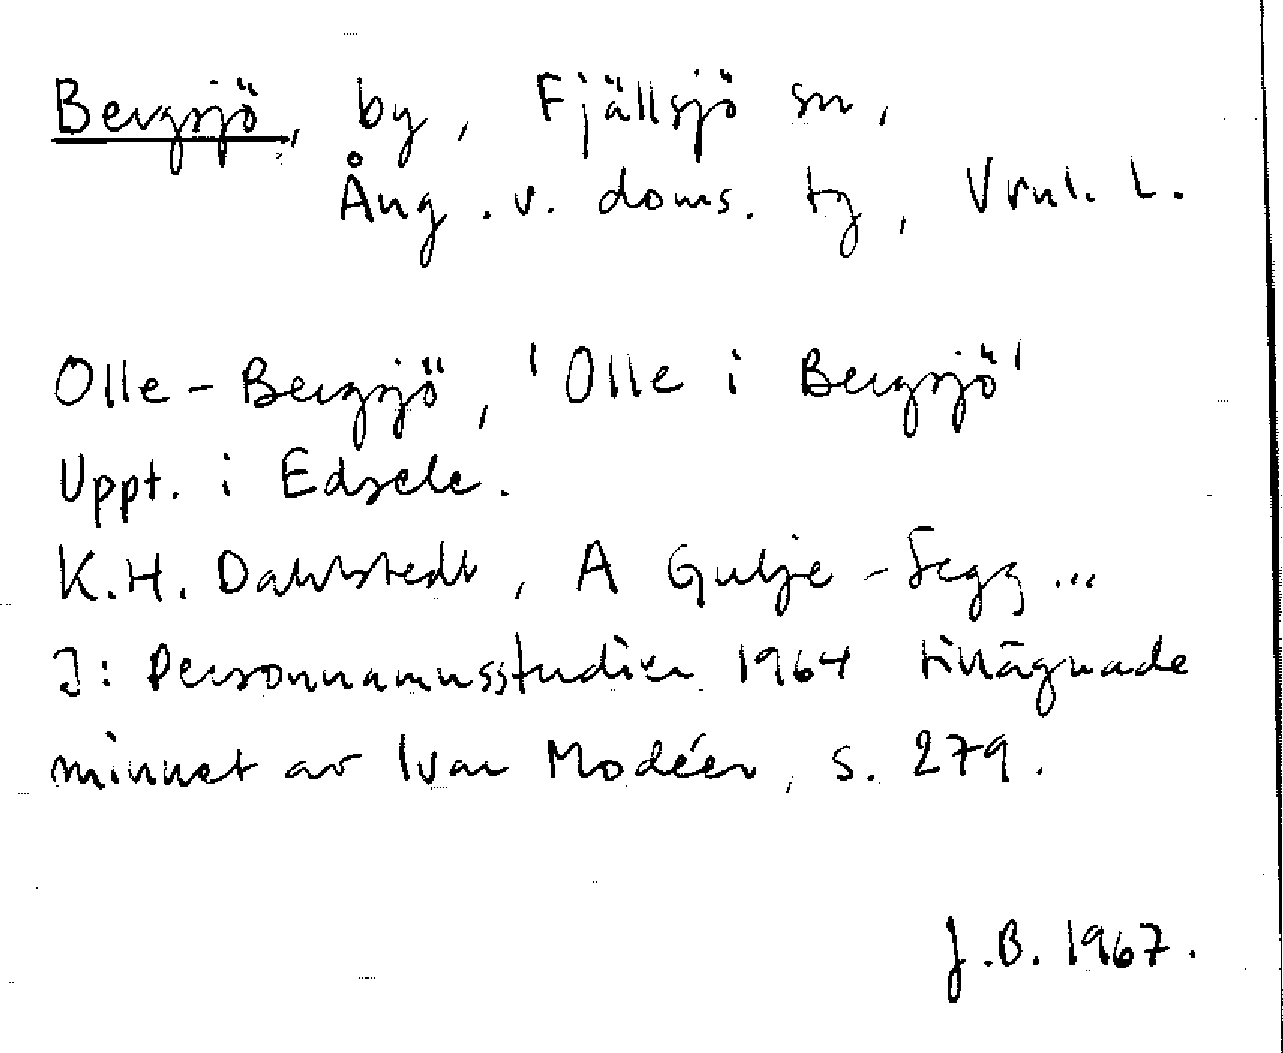 Bergsjö, by, Fjällsjö sn,
Ång. v. doms. tg, Vrnl. L.
Olle-Bergsjö, 'Olle i Bergsjö'
Uppt. i Edsele.
K.H. Dahlstedt, A Gulje-Segg...
I: Personnamnsstudier 1964 tillägnade
minnet av Ivar Modéer, s. 279.
J.B. 1967.